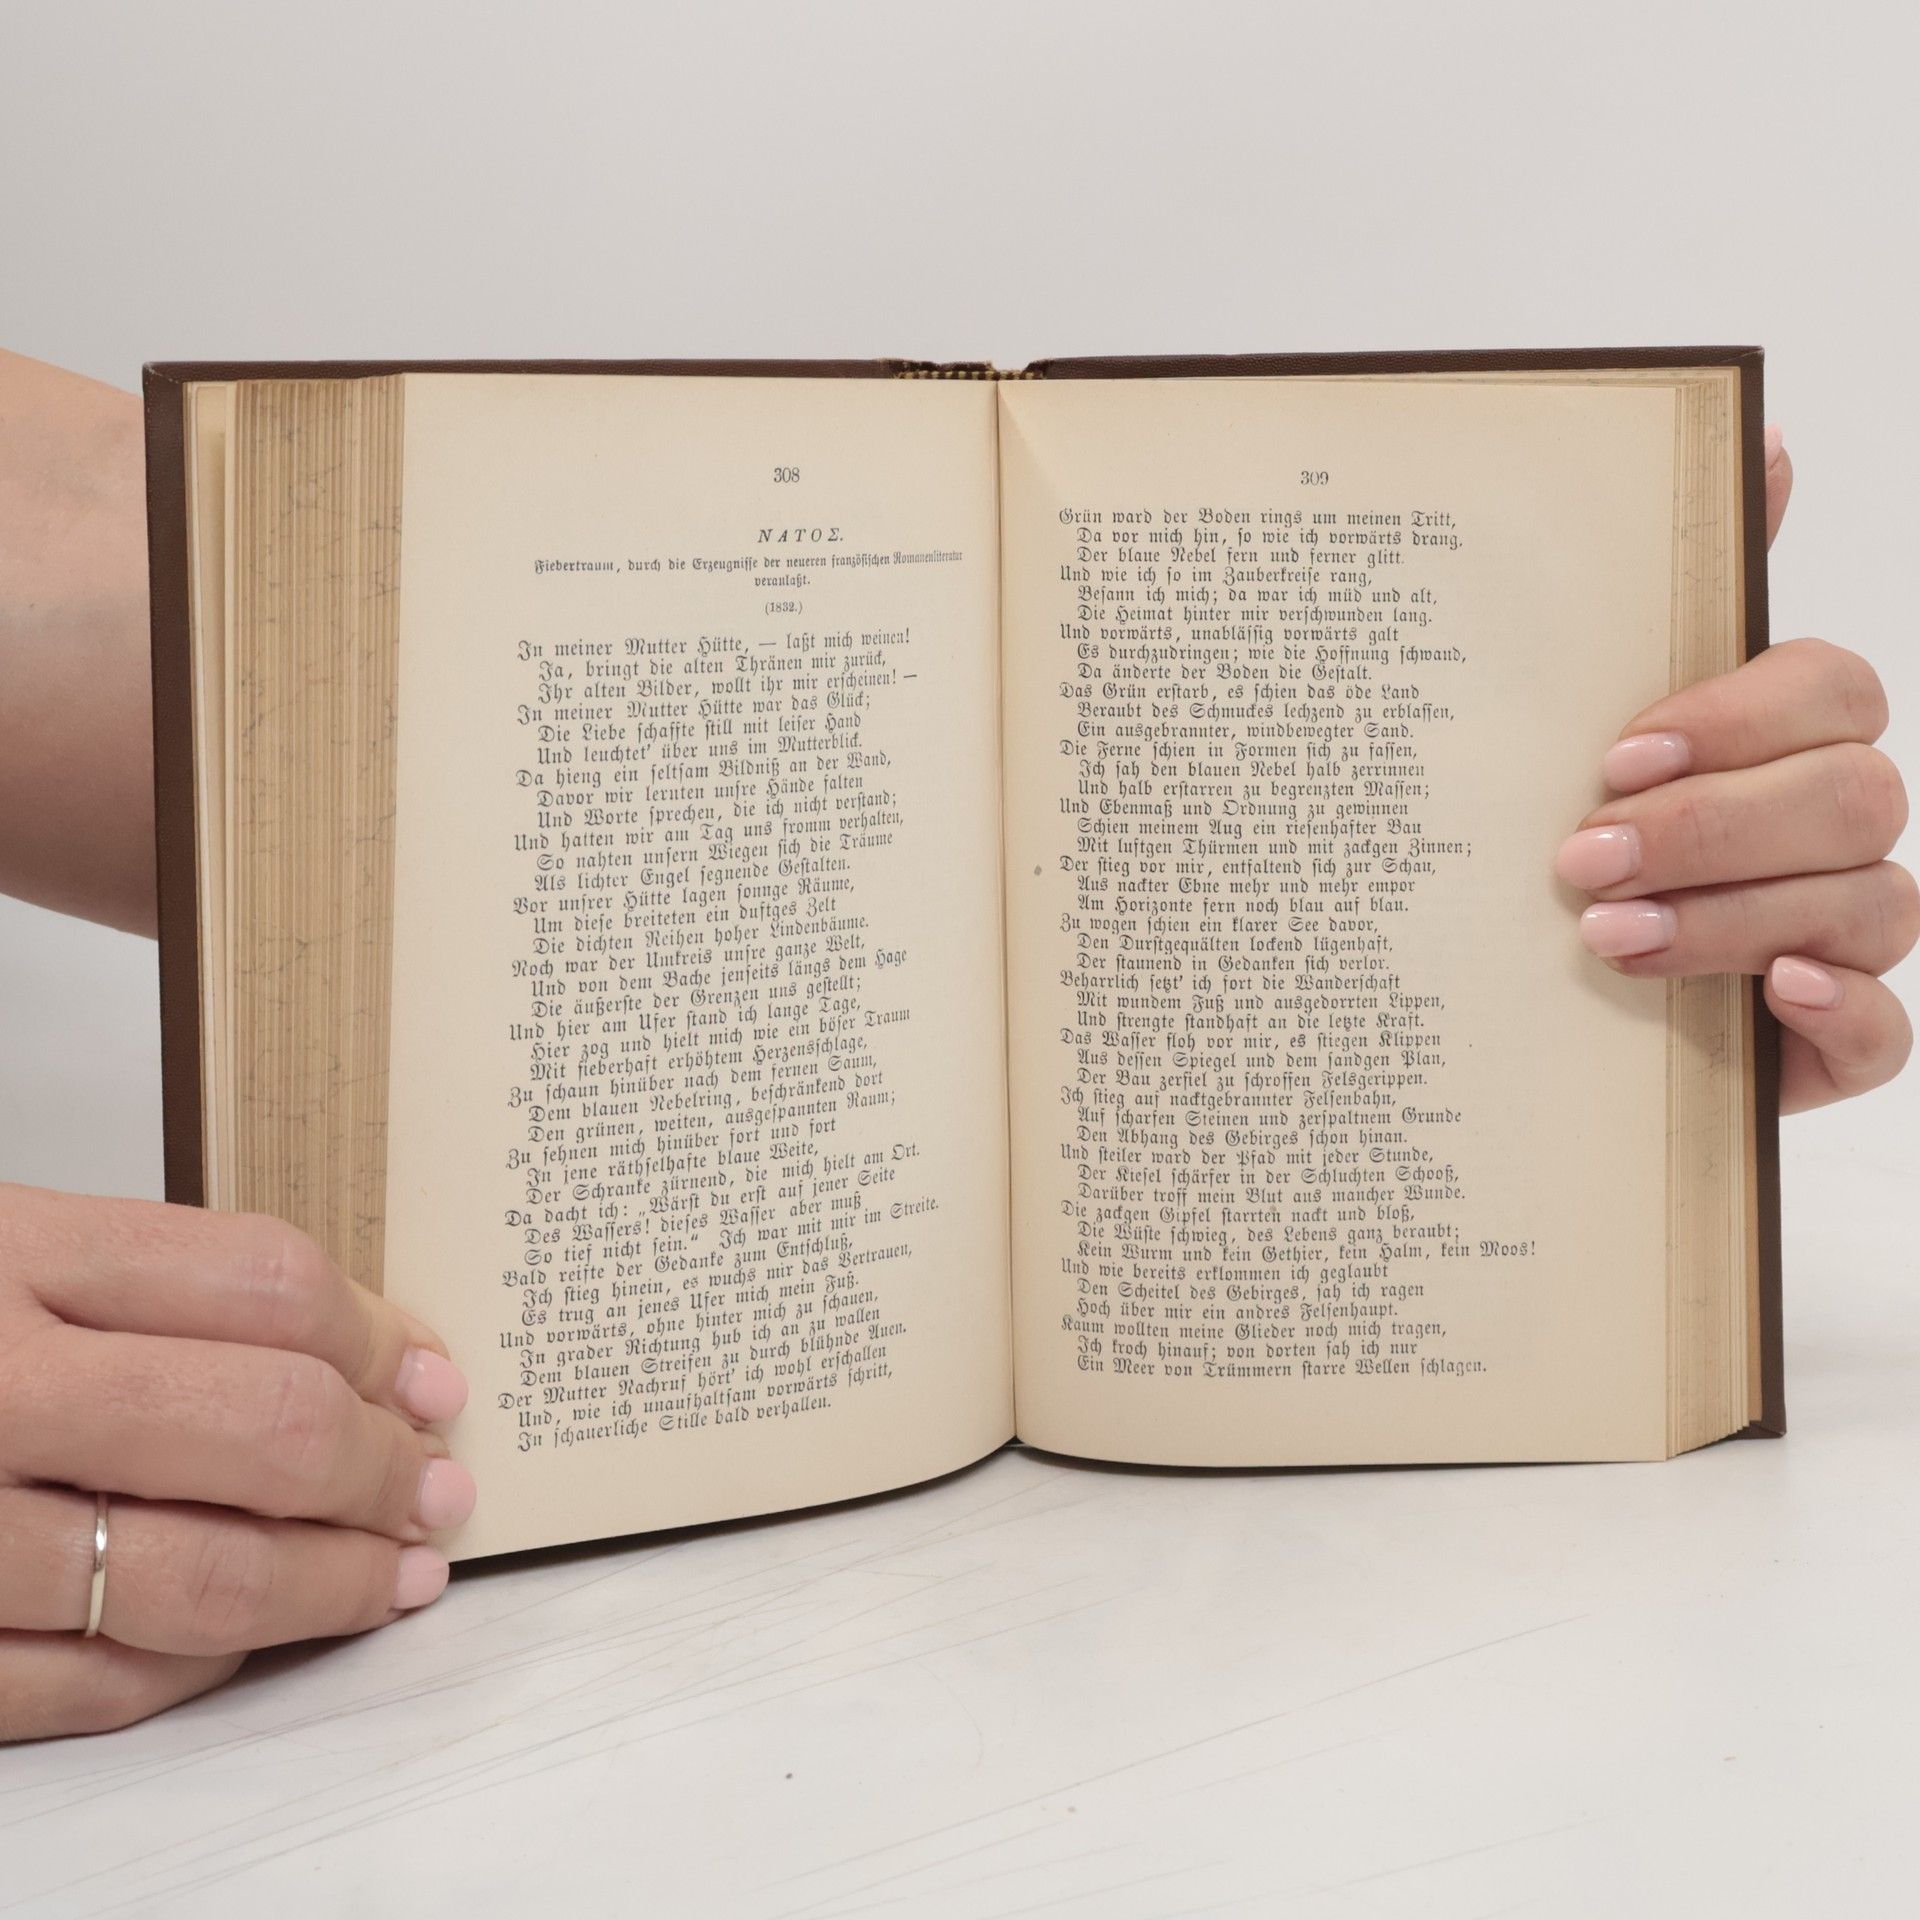 308
ΝΑΤΟΣ.
Fiebertraum, durch die Erzeugnisse der neueren französischen Romanenliteratur
veranlaßt.
(1832.)
In meiner Mutter Hütte, — laßt mich weinen!
Ja, bringt die alten Thränen mir zurück,
Ihr alten Bilder, wollt ihr mir erscheinen! —
In meiner Mutter Hütte war das Glück;
Die Liebe schaffte still mit leiser Hand
Und leuchtet' über uns im Mutterblick.
Da hieng ein seltsam Bildniß an der Wand,
Davor wir lernten unsre Hände falten
Und Worte sprechen, die ich nicht verstand;
Und hatten wir am Tag uns fromm verhalten,
So nahten unsern Wiegen sich die Träume
Als lichter Engel segnende Gestalten.
Vor unsrer Hütte lagen sonnge Räume,
Um diese breiteten ein duftges Zelt
Die dichten Reihen hoher Lindenbäume.
Noch war der Umkreis unsre ganze Welt,
Und von dem Bache jenseits längs dem Hage
Die äußerste der Grenzen uns gestellt;
Und hier am Ufer stand ich lange Tage,
Hier zog und hielt mich wie ein böser Traum
Mit fieberhaft erhöhtem Herzensschlage,
Zu schaun hinüber nach dem fernen Saum,
Dem blauen Nebelring, beschränkend dort
Den grünen, weiten, ausgespannten Raum;
Zu sehnen mich hinüber fort und fort
In jene räthselhafte blaue Weite,
Der Schranke zürnend, die mich hielt am Ort.
Da dacht ich: „Wärst du erst auf jener Seite
Des Wassers! dieses Wasser aber muß
So tief nicht sein.“ Ich war mit mir im Streite.
Bald reifte der Gedanke zum Entschluß,
Ich stieg hinein, es wuchs mir das Vertrauen,
Es trug an jenes Ufer mich mein Fuß.
Und vorwärts, ohne hinter mich zu schauen,
In grader Richtung hub ich an zu wallen
Dem blauen Streifen zu durch blühnde Auen.
Der Mutter Nachruf hört' ich wohl erschallen
Und, wie ich unaufhaltsam vorwärts schritt,
In schauerliche Stille bald verhallen.
309
Grün ward der Boden rings um meinen Tritt,
Da vor mich hin, so wie ich vorwärts drang,
Der blaue Nebel fern und ferner glitt.
Und wie ich so im Zauberkreise rang,
Besann ich mich; da war ich müd und alt,
Die Heimat hinter mir verschwunden lang.
Und vorwärts, unablässig vorwärts galt
Es durchzudringen; wie die Hoffnung schwand,
Da änderte der Boden die Gestalt.
Das Grün erstarb, es schien das öde Land
Beraubt des Schmuckes lechzend zu erblassen,
Ein ausgebrannter, windbewegter Sand.
Die Ferne schien in Formen sich zu fassen,
Ich sah den blauen Nebel halb zerrinnen
Und halb erstarren zu begrenzten Massen;
Und Ebenmaß und Ordnung zu gewinnen
Schien meinem Aug ein riesenhafter Bau
Mit luftgen Thürmen und mit zackgen Zinnen;
Der stieg vor mir, entfaltend sich zur Schau,
Aus nackter Ebne mehr und mehr empor
Am Horizonte fern noch blau auf blau.
Zu wogen schien ein klarer See davor,
Den Durstgequälten lockend lügenhaft,
Der staunend in Gedanken sich verlor.
Beharrlich setzt' ich fort die Wanderschaft
Mit wundem Fuß und ausgedorrten Lippen,
Und strengte standhaft an die letzte Kraft.
Das Wasser floh vor mir, es stiegen Klippen
Aus dessen Spiegel und dem sandgen Plan,
Der Bau zerfiel zu schroffen Felsgerippen.
Ich stieg auf nacktgebrannter Felsenbahn,
Auf scharfen Steinen und zerspaltnem Grunde
Den Abhang des Gebirges schon hinan.
Und steiler ward der Pfad mit jeder Stunde,
Der Kiesel schärfer in der Schluchten Schooß,
Darüber troff mein Blut aus mancher Wunde.
Die zackgen Gipfel starrten nackt und bloß,
Die Wüste schwieg, des Lebens ganz beraubt;
Kein Wurm und kein Gethier, kein Halm, kein Moos!
Und wie bereits erklommen ich geglaubt
Den Scheitel des Gebirges, sah ich ragen
Hoch über mir ein andres Felsenhaupt.
Kaum wollten meine Glieder noch mich tragen,
Ich kroch hinauf; von dorten sah ich nur
Ein Meer von Trümmern starre Wellen schlagen.